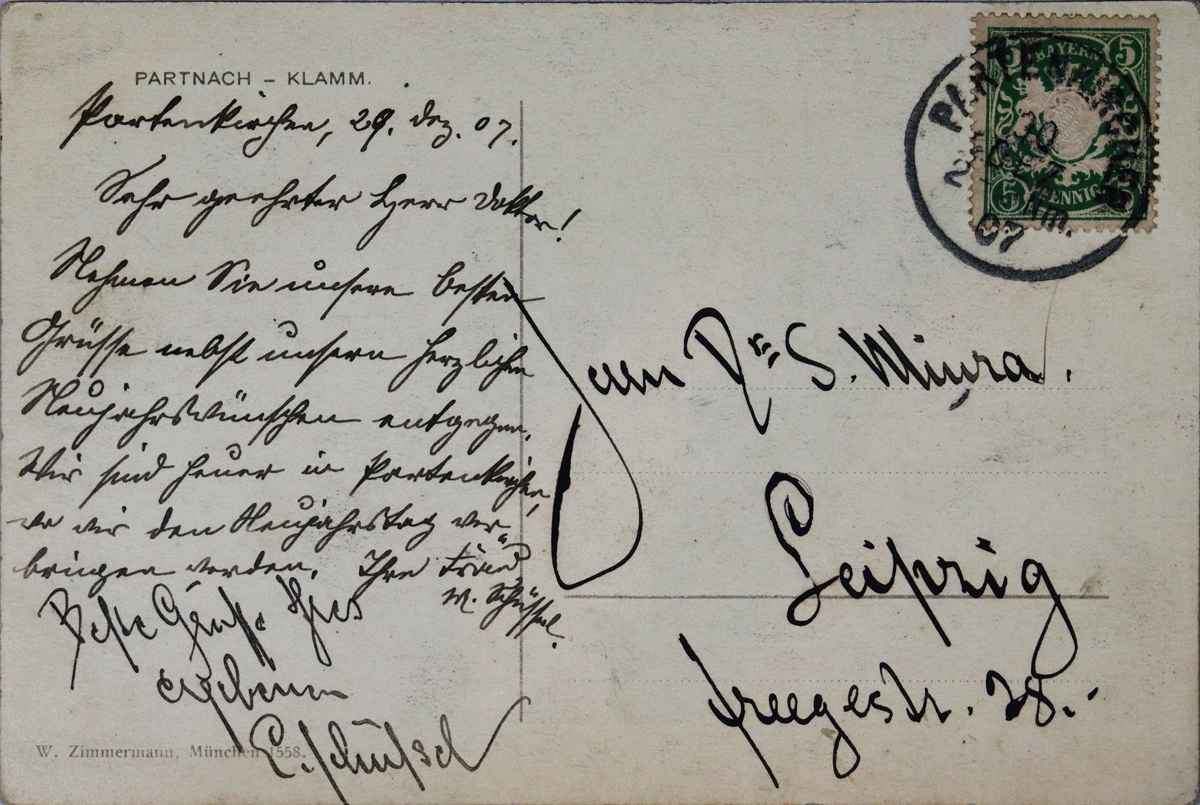 PARTNACH – KLAMM.
Partenkirchen, 29. Dez. 07.
Sehr geehrter Herr Doktor!
Nehmen Sie unsere besten
Grüsse nebst unsern herzlichen
Neujahrswünschen entgegen.
Wir sind heuer in Partenkirchen,
wo wir den Neujahrstag ver-
bringen werden. Ihre
M.
Beste Grüße Ihres
ergebenen
E.
W. Zimmermann, München 1558.
BAYERN
5 5
5
PFENNIG
PARTENKIRCHEN
30
07
Herrn Dr. S. Miura.
Leipzig
Freegestr. 28.